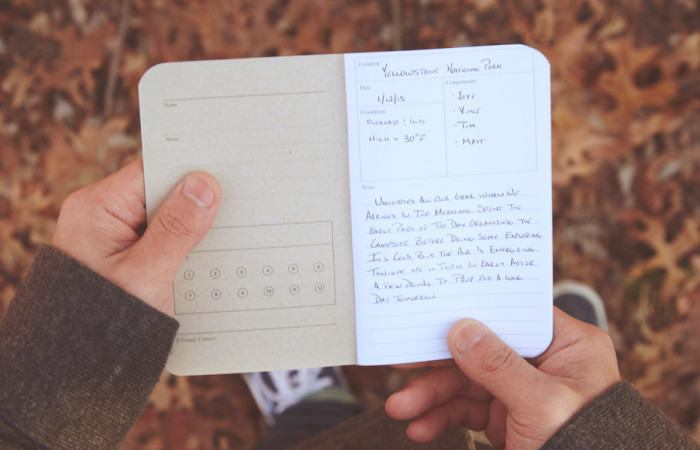 Name
Notes
1 2 3 4 5 6
7 8 9 10 11 12
If Found, Contact:
Location
Yellowstone National Park
Date
1/12/15
Companions
· Jeff
· Vince
· Tim
· Matt
Conditions
Overcast
High = 30°F
Notes
Unloaded all our gear when we
arrived in the morning. Spent the
early part of the day organizing the
campsite before doing some exploring.
It's cold, but the air is energizing.
Tonight we'll turn in early after
a few drinks to prep for a long
day tomorrow.